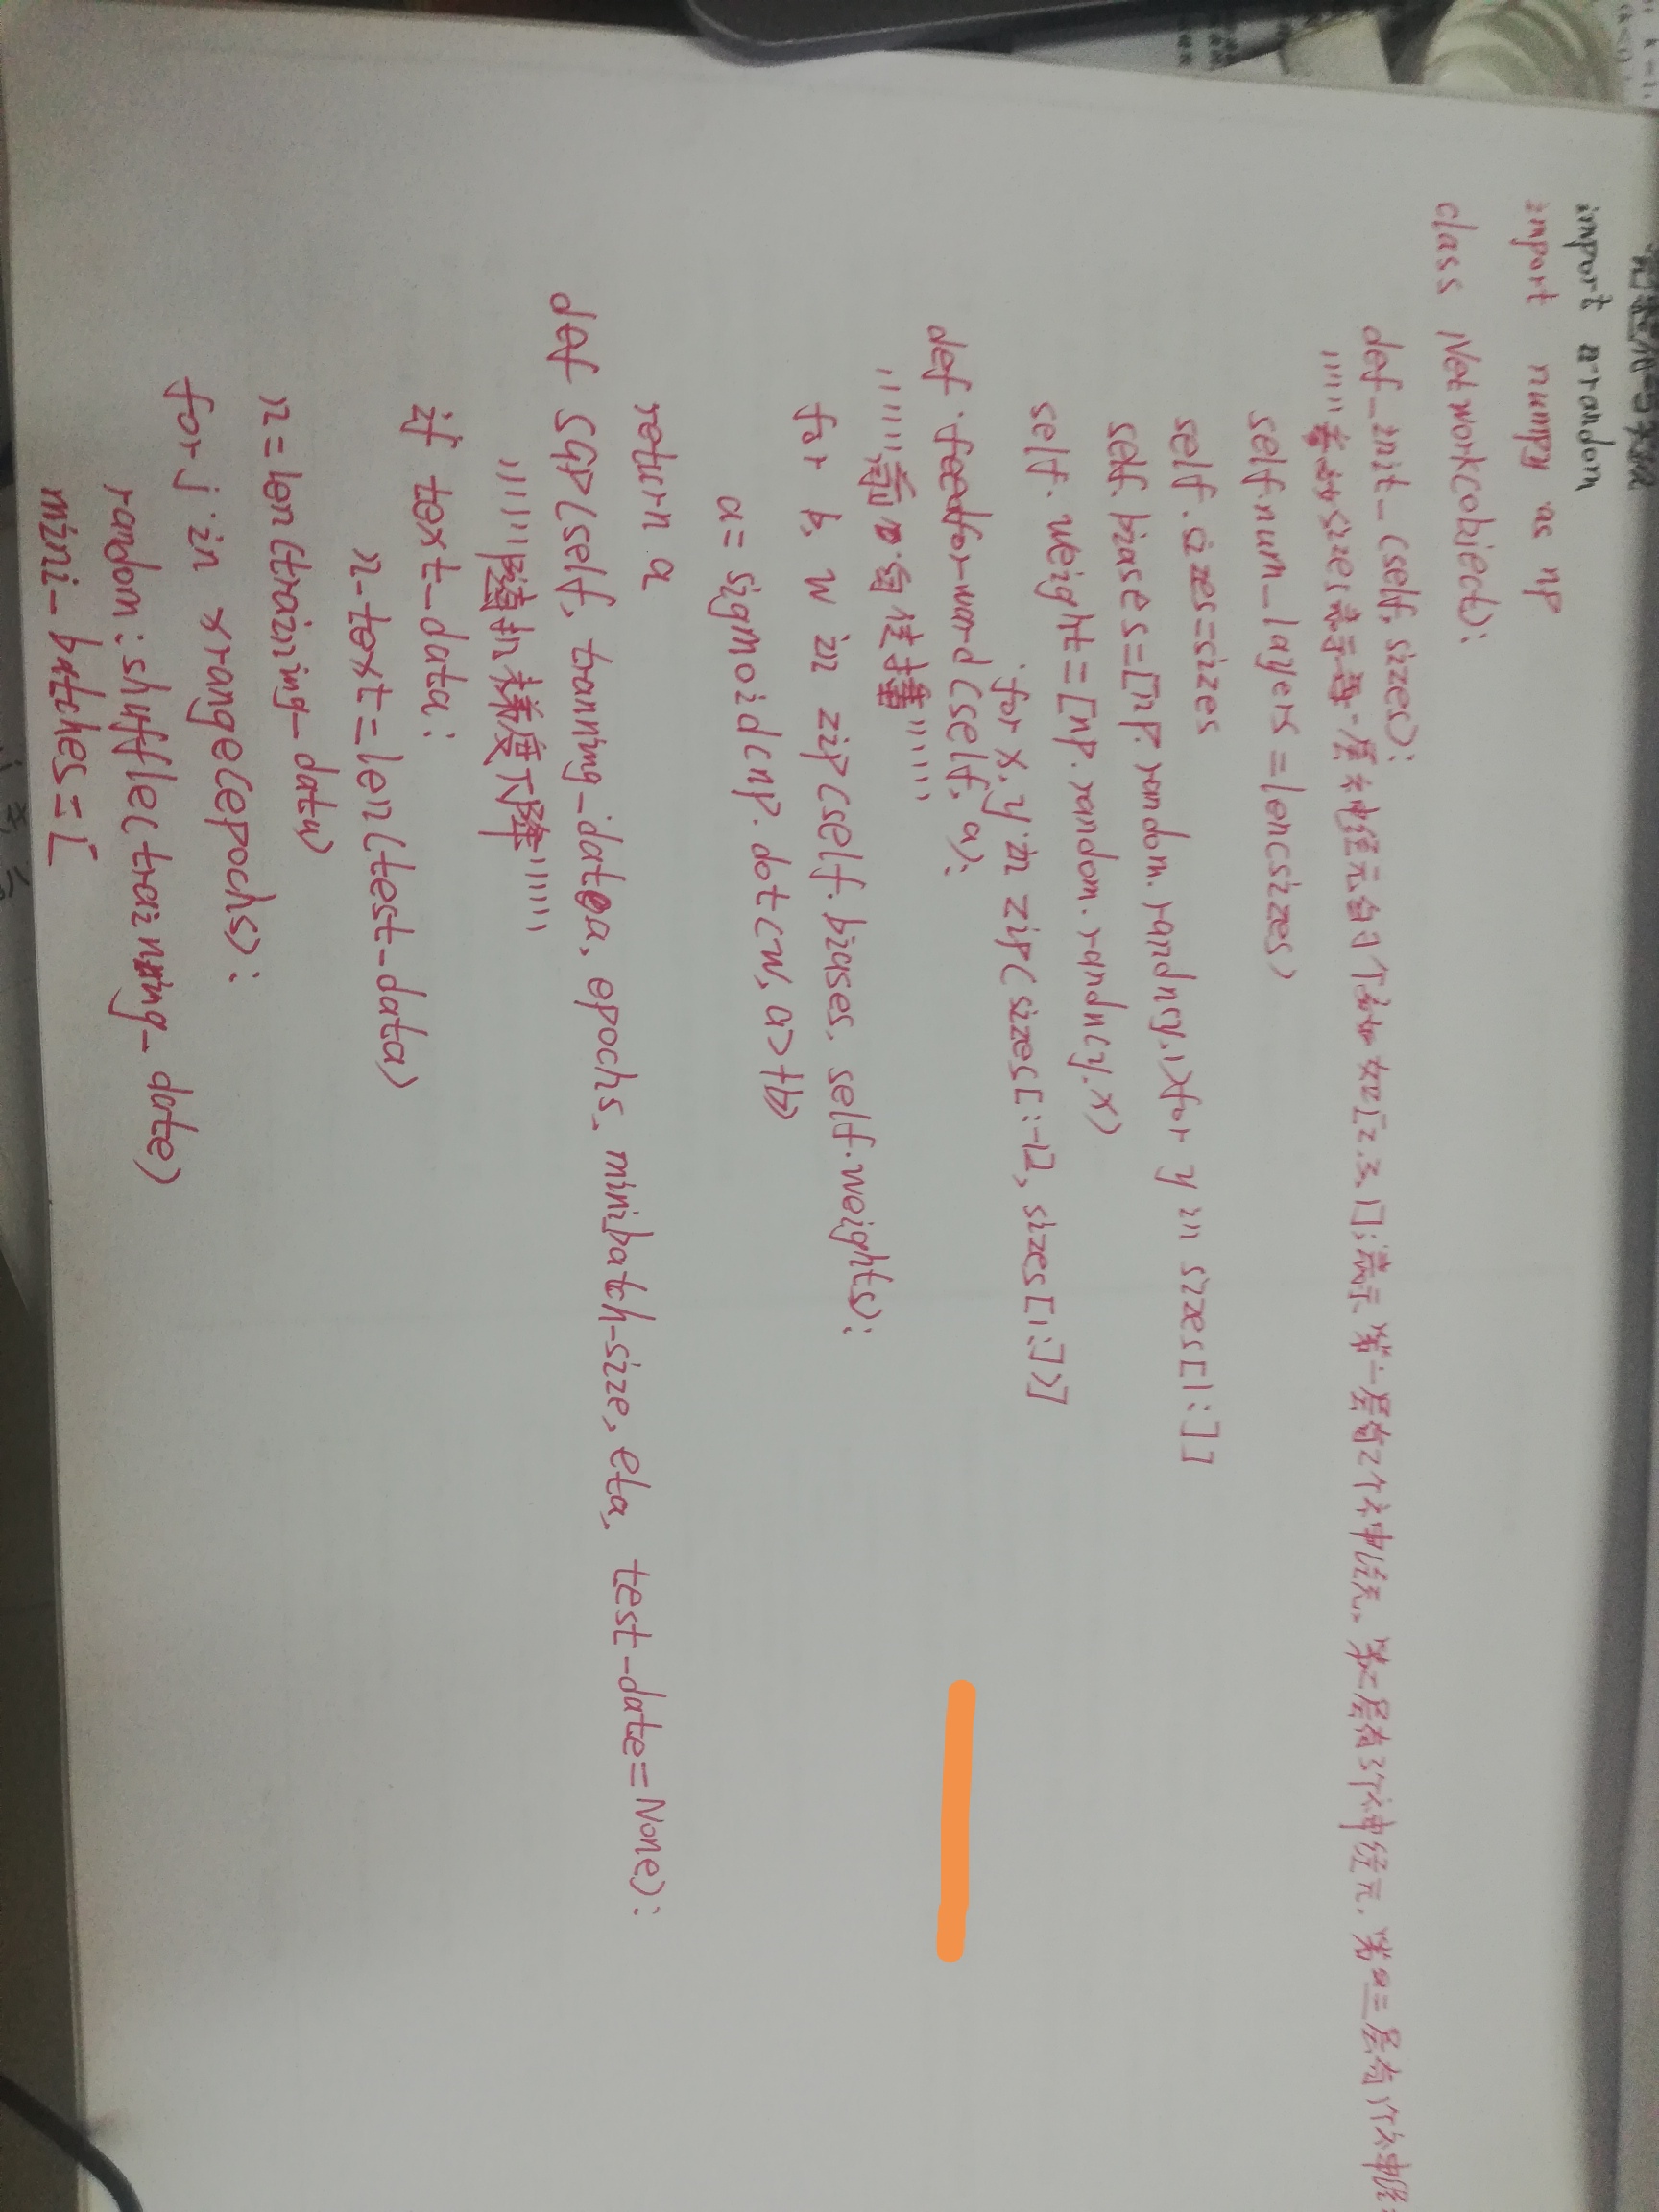 import random
import numpy as np
class Network(object):
def_init_(self, sizes):
""" 参数sizes表示每一层神经元的个数 如[2.3.1];表示第一层有2个神经元、第二层有3个神经元、第三层有1个神经
self.num_layers=len(sizes)
self.sizes=sizes
self.biases=[np.random.randn(y.1)for y in sizes[1:]]
self.weight=[np.random.randn(y.x)
for x.y in zip(sizes[:-1], sizes[1:])]
def feedfor-ward(self, a):
"""前向传播"""
for b, w in zip(self.biases, self.weights):
a=sigmoid(np.dot(w,a)+b)
return a
def SGD(self, tranning_data, epochs, minibatch-size, eta, test-date=None):
"""随机梯度下降"""
if text-data:
n-text=len(test-data)
n=len(training-data)
for j in xrange(epochs):
random:shuffle(training-date)
mini-batches=[